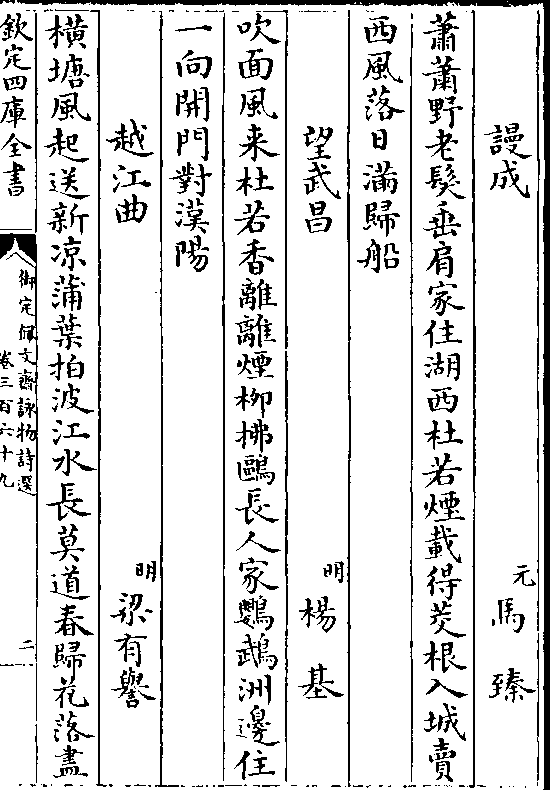 謾成　元　馬臻
蕭蕭野老髮垂肩家住湖西杜若煙載得茭根入城賣
西風落日滿歸船
望武昌　明　楊基
吹面風来杜若香離離煙柳拂鷗長人家鸚鵡洲邊住
一向開門對漢陽
越江曲　明　梁有譽
橫塘風起送新凉蒲葉拍波江水長莫道春歸花落盡
欽定四庫全書
御定佩文齋詠物詩選
卷三百六十九
二